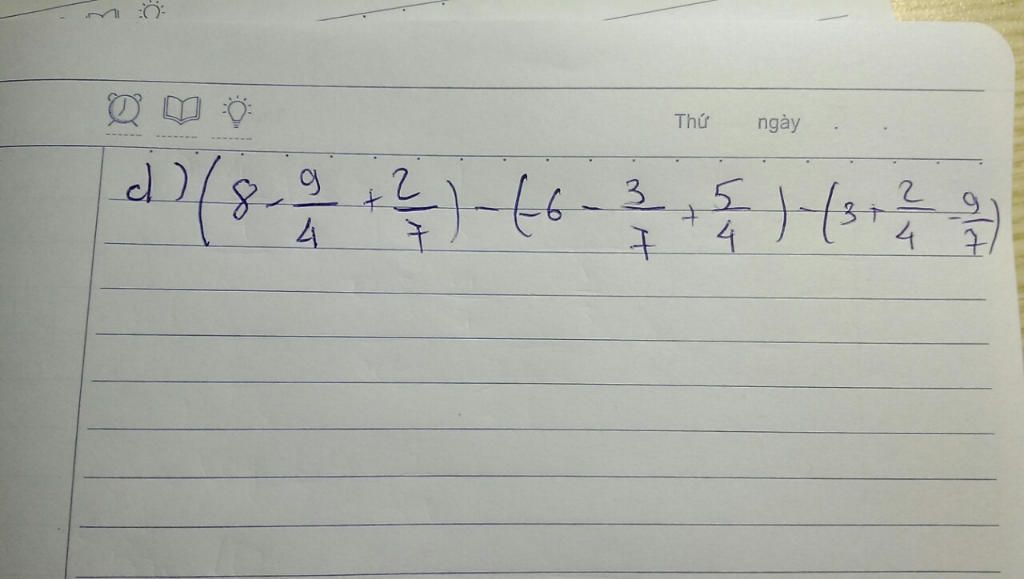 Thứ ngày . .
d) (8 - 9/4 + 2/7) - (-6 - 3/7 + 5/4) - (3 + 2/4 - 9/7)